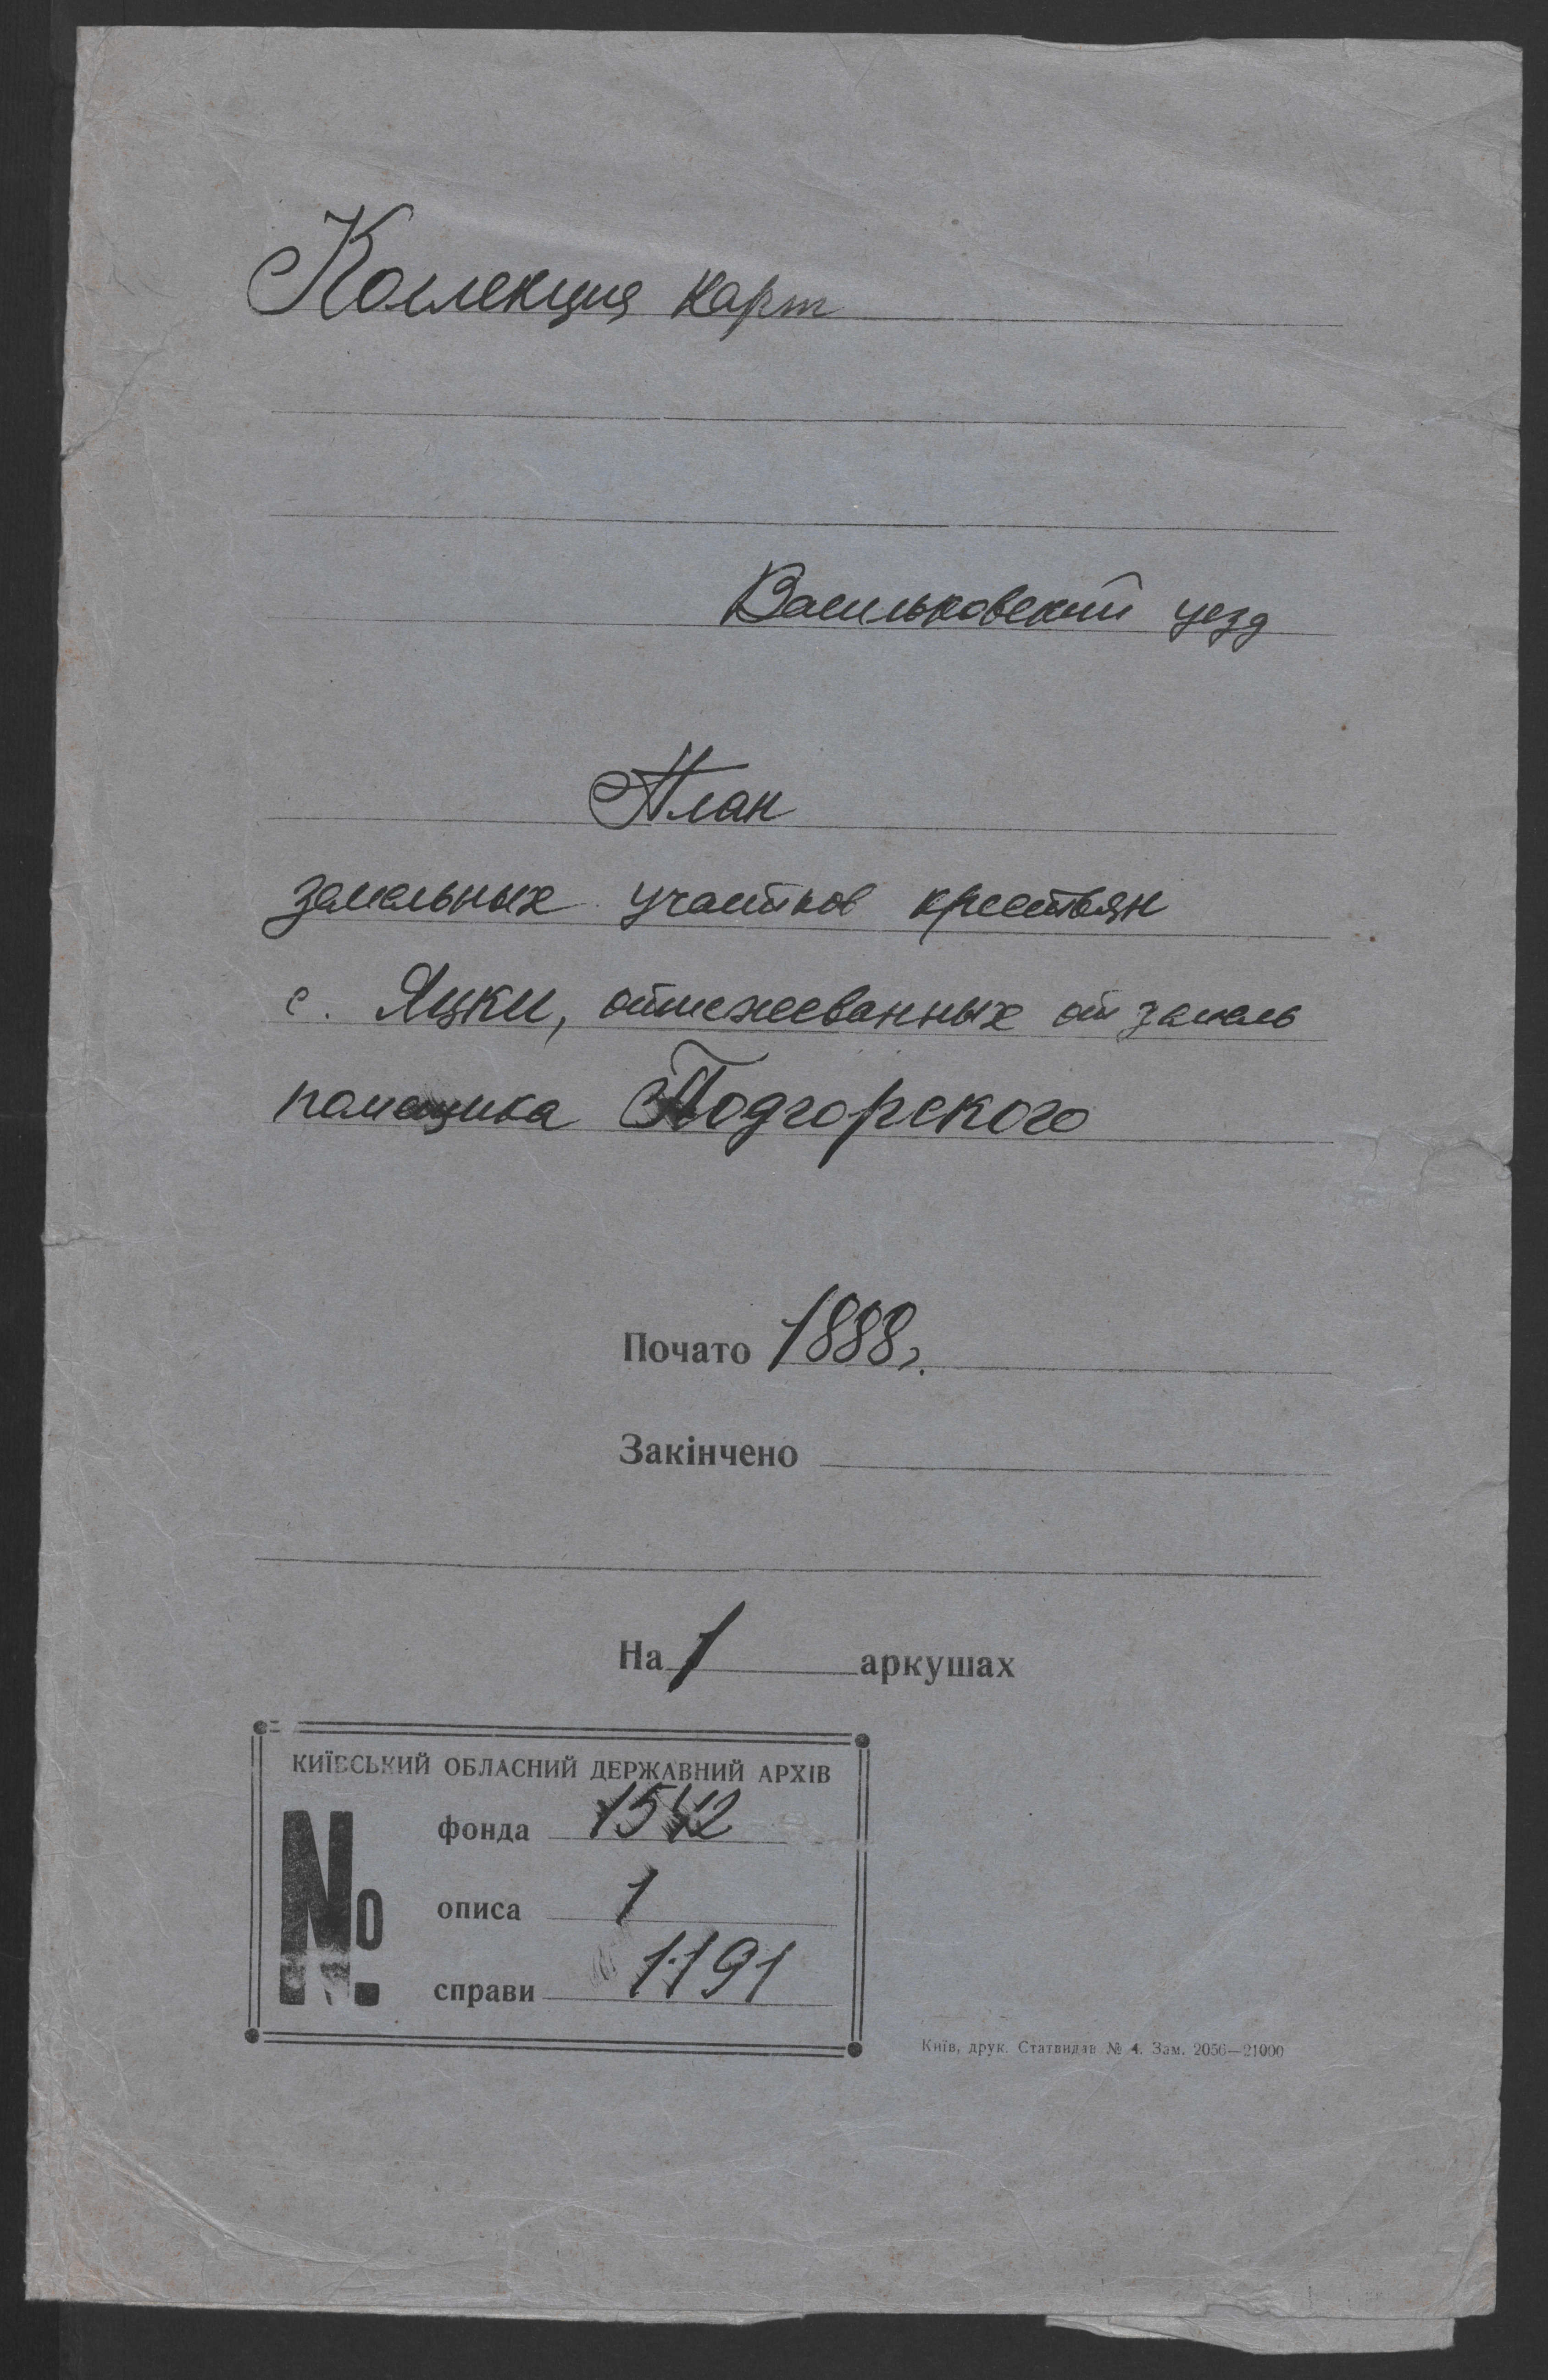 Коллекция карт
Васильковский уезд
План
земельных участков крестьян
с. Яцки, отмежеванных от земель
помещика Подгорского
Почато 1888г.
Закінчено
На 1 аркушах
КИЇВСЬКИЙ ОБЛАСНИЙ ДЕРЖАВНИЙ АРХІВ
№
фонда 1542
описа 1
справи 1191
Київ, друк. Статвидав № 4. Зам. 2056—21000